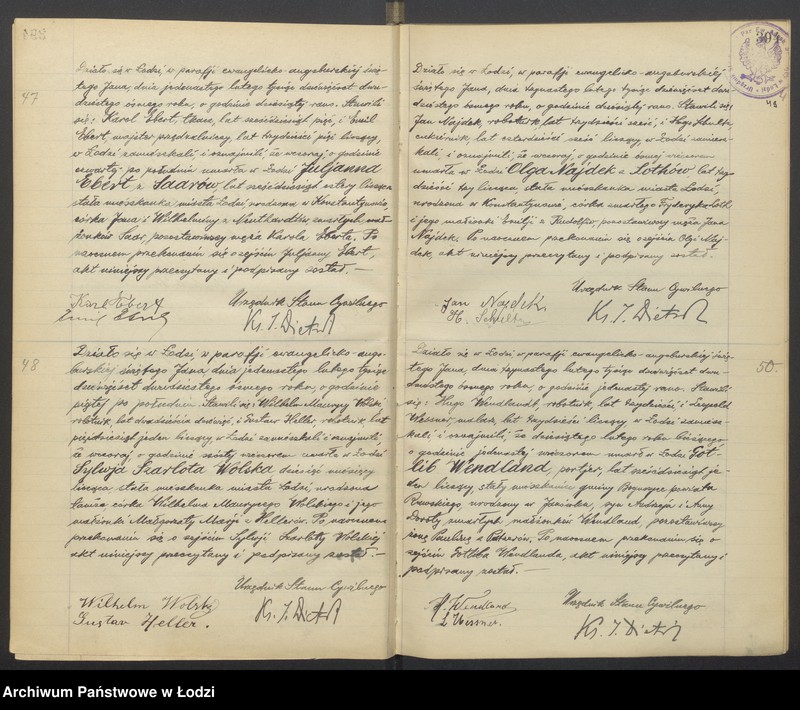 47
Działo się w Łodzi, w parafji ewangelicko-augsburskiej świę-
tego Jana, dnia jedenastego lutego tysiąc dziewięćset dwu-
dziestego ósmego roku, o godzinie dziesiątej rano. Stawili
się: Karol Ebert, tkacz, lat sześćdziesiąt pięć, i Emil
Ebert, majster przędzalniczy, lat trzydzieści pięć liczący,
w Łodzi zamieszkali, i oznajmili, że wczoraj, o godzinie
czwartej po południu umarła w Łodzi Juljanna
Ebert z Saarów, lat sześćdziesiąt cztery licząca
stała mieszkanka miasta Łodzi, urodzona w Konstantynowie,
córka Jana i Wilhelminy z zmarłych mał-
żonków Saar, pozostawiwszy męża Karola Eberta. Po
naocznem przekonaniu się o zejściu Juljanny Ebert,
akt niniejszy przeczytany i podpisany został. —
Karl Ebert
Emil Ebert
Urzędnik Stanu Cywilnego
Ks. J. Dietrich
48
Działo się w Łodzi, w parafji ewangelicko-augs-
burskiej świętego Jana, dnia jedenastego lutego tysiąc
dziewięćset dwudziestego ósmego roku, o godzinie
piątej po południu. Stawili się: Wilhelm Maurycy Wolski,
robotnik, lat dwadzieścia i Gustaw Heller, robotnik, lat
pięćdziesiąt jeden liczący, w Łodzi zamieszkali i oznajmili,
że wczoraj, o godzinie szóstej wieczorem umarła w Łodzi
Sylwja Szarlota Wolska dziesięć miesięcy
licząca, stała mieszkanka miasta Łodzi, urodzona
tamże, córka Wilhelma Maurycego Wolskiego i jego
małżonki Małgorzaty Marji z Hellerów. Po naocznem
przekonaniu się o zejściu Sylwji Szarloty Wolskiej
akt niniejszy przeczytany i podpisany został. —
Wilhelm Wolski
Gustav Heller.
Urzędnik Stanu Cywilnego
Ks. J. Dietrich
Działo się w Łodzi, w parafji ewangelicko-augsburskiej
świętego Jana, dnia trzynastego lutego tysiąc dziewięćset dwu-
dziestego ósmego roku, o godzinie dziesiątej rano. Stawili się:
Jan Najdek, robotnik, lat trzydzieści sześć, i Hugo Schultz,
cukiernik, lat czterdzieści sześć liczący, w Łodzi zamiesz-
kali, i oznajmili, że wczoraj, o godzinie ósmej wieczorem
umarła w Łodzi Olga Najdek z Lothów, lat trzy-
dzieści trzy licząca, stała mieszkanka miasta Łodzi,
urodzona w Konstantynowie, córka zmarłego Fryderyka Loth
i jego małżonki Emilji z Rudolfów, pozostawiwszy męża Jana
Najdek. Po naocznem przekonaniu się o zejściu Olgi Naj-
dek, akt niniejszy przeczytany i podpisany został.
Jan Najdek
H. Schultz
Urzędnik Stanu Cywilnego
Ks. J. Dietrich
50.
Działo się w Łodzi w parafji ewangelicko-augsburskiej świę-
tego Jana, dnia trzynastego lutego tysiąc dziewięćset dwu-
dziestego ósmego roku, o godzinie jedenastej rano. Stawili
się: Hugo Wendlandt, robotnik, lat trzydzieści i Leopold
Wessner, malarz, lat trzydzieści liczący w Łodzi zamiesz-
kali i oznajmili, że dziesiątego lutego roku bieżącego,
o godzinie jedenastej wieczorem umarł w Łodzi Got-
lib Wendland, portjer, lat sześćdziesiąt je-
den liczący, stały mieszkaniec gminy powiatu
Rawskiego, urodzony w Janinku, syn Andrzeja i Anny
Doroty zmarłych małżonków Wendland, pozostawiwszy
żonę Paulinę z Po naocznem przekonaniu się o
zejściu Gottliba Wendlanda, akt niniejszy przeczytany i
podpisany został. —
H. Wendland
L. Wessner.
Urzędnik Stanu Cywilnego
Ks. J. Dietrich
Archiwum Państwowe w Łodzi